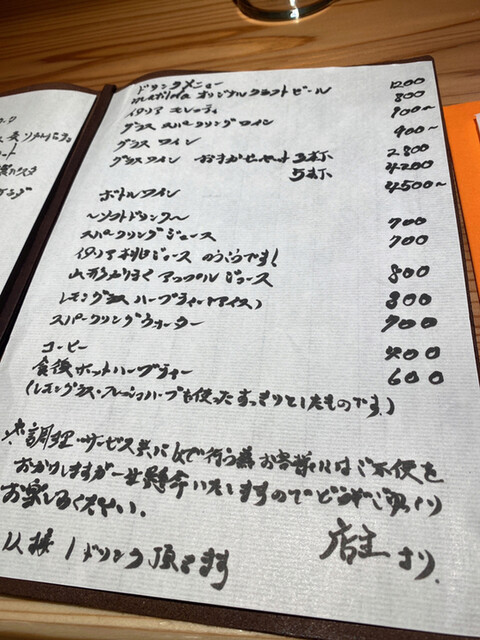 ドリンクメニュー
オリジナルクラフトビール 1200
イタリア モレッティ 800
グラス スパークリングワイン 900~
グラス ワイン 900~
グラスワイン おまかせセット 3杯 2800
5杯 4200
ボトルワイン 4500~
~ソフトドリンク~
スパークリングジュース 700
イタリア桃ジュース のうこうです! 700
山形 アップルジュース 800
レモングラスハーブティー(アイス) 800
スパークリングウォーター 700
コーヒー 400
食後ホットハーブティー 600
(レモングラス・フレッシュハーブを使ったすっきりとしたものです。)
※調理・サービス共に1人で行う為お客様にはご不便を
おかけしますが一生懸命いたしますのでどうぞごゆっくり
お楽しみください。
店主より。
以接 1ドリンク頂きます